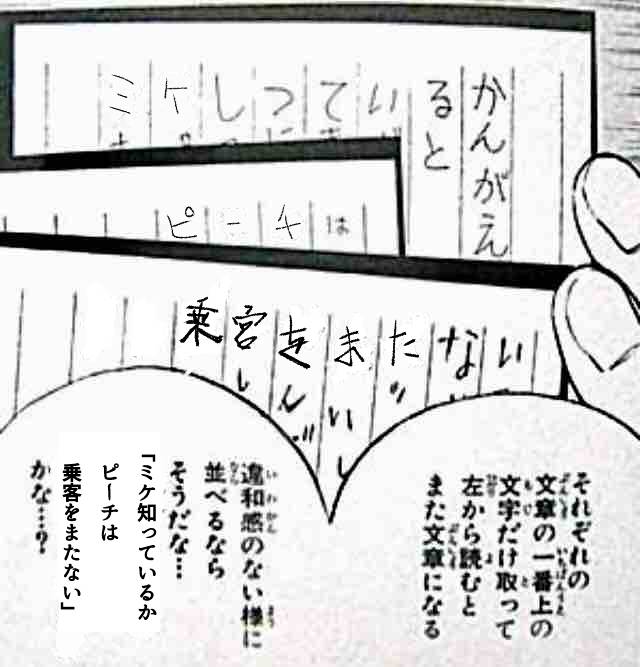 かんがえ
ると
ミケしつてい
ピーチは
乗宮をまたない
それぞれの
文章の一番上の
文字だけ取って
左から読むと
また文章になる
違和感のない様に
並べるなら
そうだな…
「ミケ知っているか
ピーチは
乗客をまたない」
かな…？